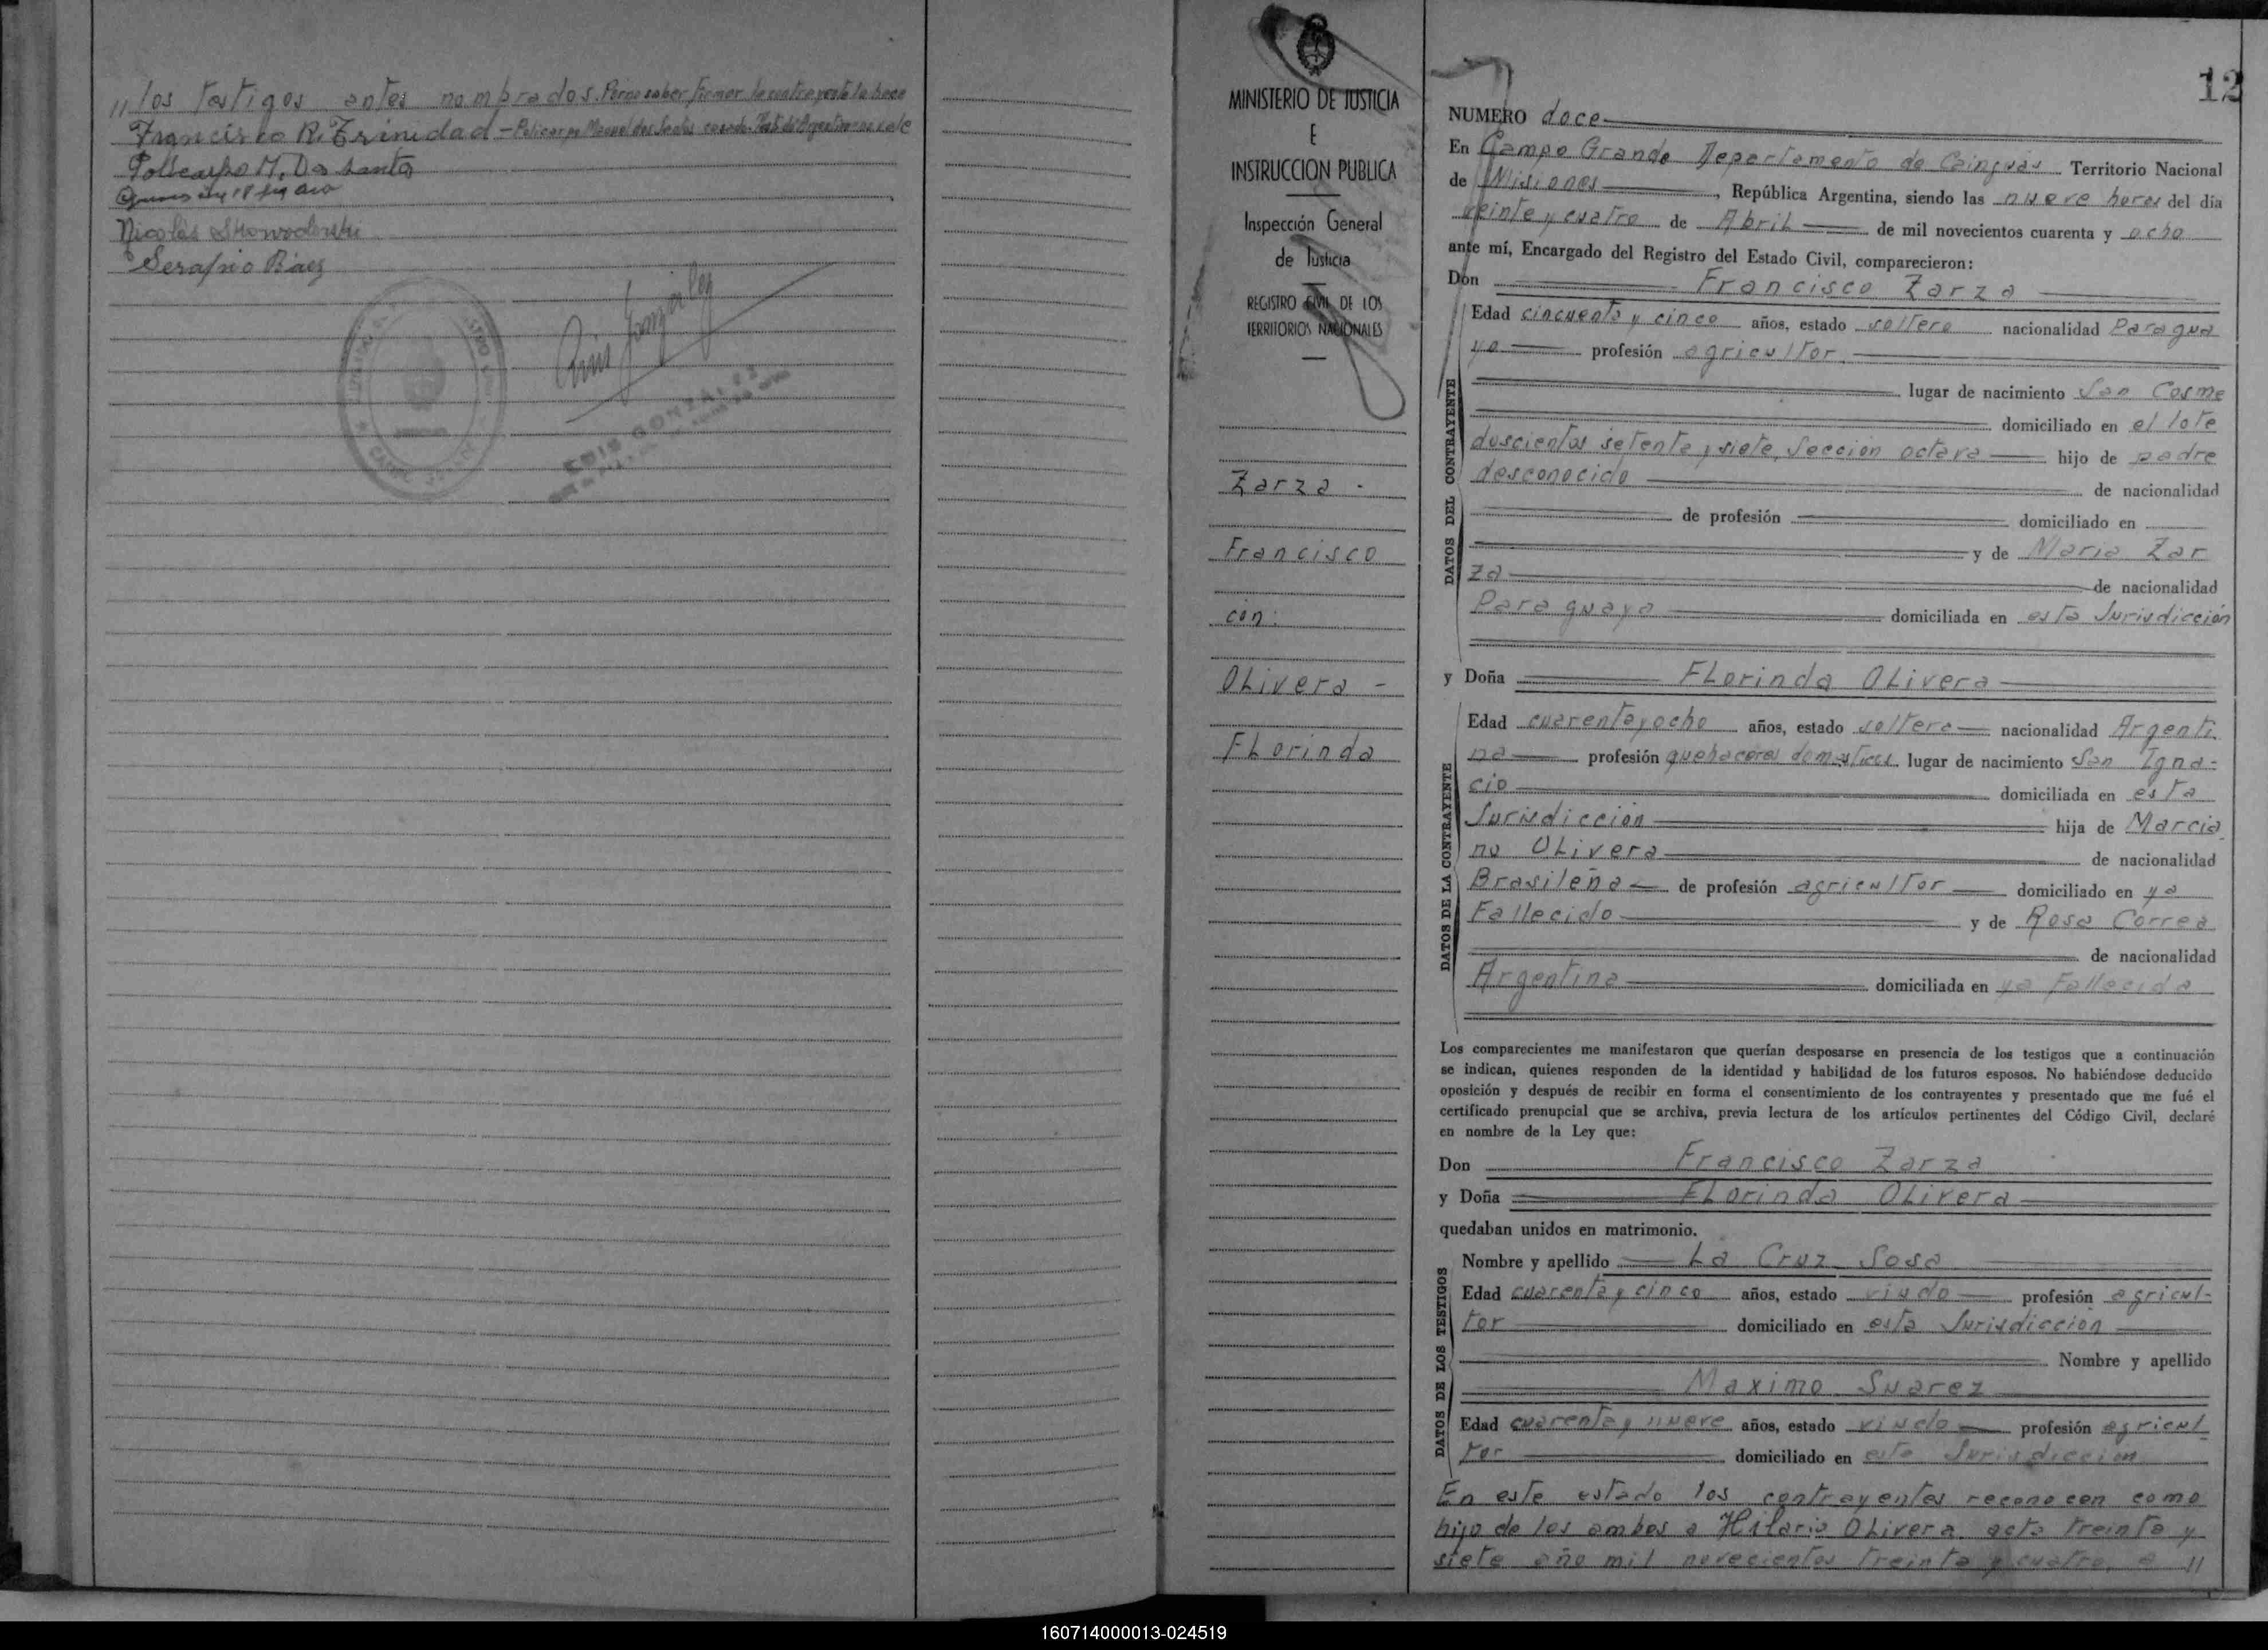 // los testigos antes nombrados. Por no saber firmar la contrayente lo hace
Francisco R. Trinidad - Policarpo Manuel dos Santos casado. Test: do Argentino = no vale
Policarpo M. Dos Santo
Nicolás
Serafino Báez
Luis Gonzalez
LUIS GONZALEZ
12
MINISTERIO DE JUSTICIA
E
INSTRUCCION PUBLICA
Inspección General
de Justicia
REGISTRO CIVIL DE LOS
TERRITORIOS NACIONALES
Zarza -
Francisco
con:
OLivera -
FLorinda
NUMERO doce
En Campo Grande Departamento de Cainguás Territorio Nacional
de Misiones, República Argentina, siendo las nueve horas del día
veinte y cuatro de Abril de mil novecientos cuarenta y ocho
ante mí, Encargado del Registro del Estado Civil, comparecieron:
Don Francisco Zarza
DATOS DEL CONTRAYENTE
Edad cincuenta y cinco años, estado soltero nacionalidad Paragua
ya profesión agricultor
lugar de nacimiento San Cosme
domiciliado en el lote
duscientos setenta y siete, Sección octava hijo de padre
desconocido de nacionalidad
de profesión domiciliado en
y de Maria Zar
za de nacionalidad
Paraguaya domiciliada en esta Jurisdicción
y Doña FLorinda OLivera
DATOS DE LA CONTRAYENTE
Edad cuarenta y ocho años, estado soltera nacionalidad Argenti
na profesión quehaceres domesticos lugar de nacimiento San Igna-
cio domiciliada en esta
Jurisdicción hija de Marcia
no OLivera de nacionalidad
Brasileña de profesión agricultor domiciliado en ya
Fallecido y de Rosa Correa
de nacionalidad
Argentina domiciliada en ya Fallecida
Los comparecientes me manifestaron que querían desposarse en presencia de los testigos que a continuación
se indican, quienes responden de la identidad y habilidad de los futuros esposos. No habiéndose deducido
oposición y después de recibir en forma el consentimiento de los contrayentes y presentado que me fué el
certificado prenupcial que se archiva, previa lectura de los artículos pertinentes del Código Civil, declaré
en nombre de la Ley que:
Don Francisco Zarza
y Doña FLorinda OLivera
quedaban unidos en matrimonio.
DATOS DE LOS TESTIGOS
Nombre y apellido La Cruz Sosa
Edad cuarenta y cinco años, estado viudo profesión agricul-
tor domiciliado en esta Jurisdicción
Nombre y apellido
Maximo Suarez
Edad cuarenta y nueve años, estado viudo profesión agricul
tor domiciliado en esta Jurisdiccion
En este estado los contrayentes reconocen como
hijo de los ambos a Hilario OLivera acta treinta y
siete año mil novecientos treinta y cuatro, a //
160714000013-024519